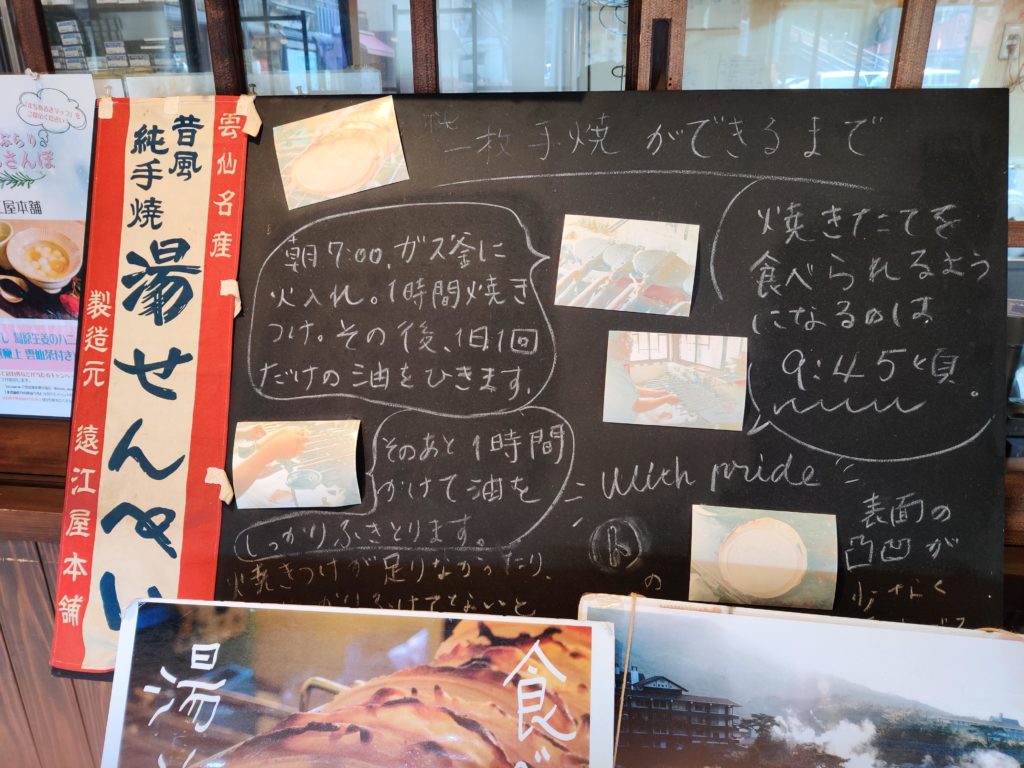 雲仙名産
昔風
純手焼
湯せんぺい
製造元 遠江屋本舗
一枚手焼ができるまで
朝7:00、ガス釜に
火入れ。1時間焼き
つけ。その後、1日1回
だけの油をひきます。
そのあと1時間
かけて油を
しっかりふきとります。
焼きつけが足りなかったり、
焼きたてを
食べられるよう
になるのは
9:45頃。
with pride
表面の
凸凹が
少なく
の
湯
食
江屋本舗